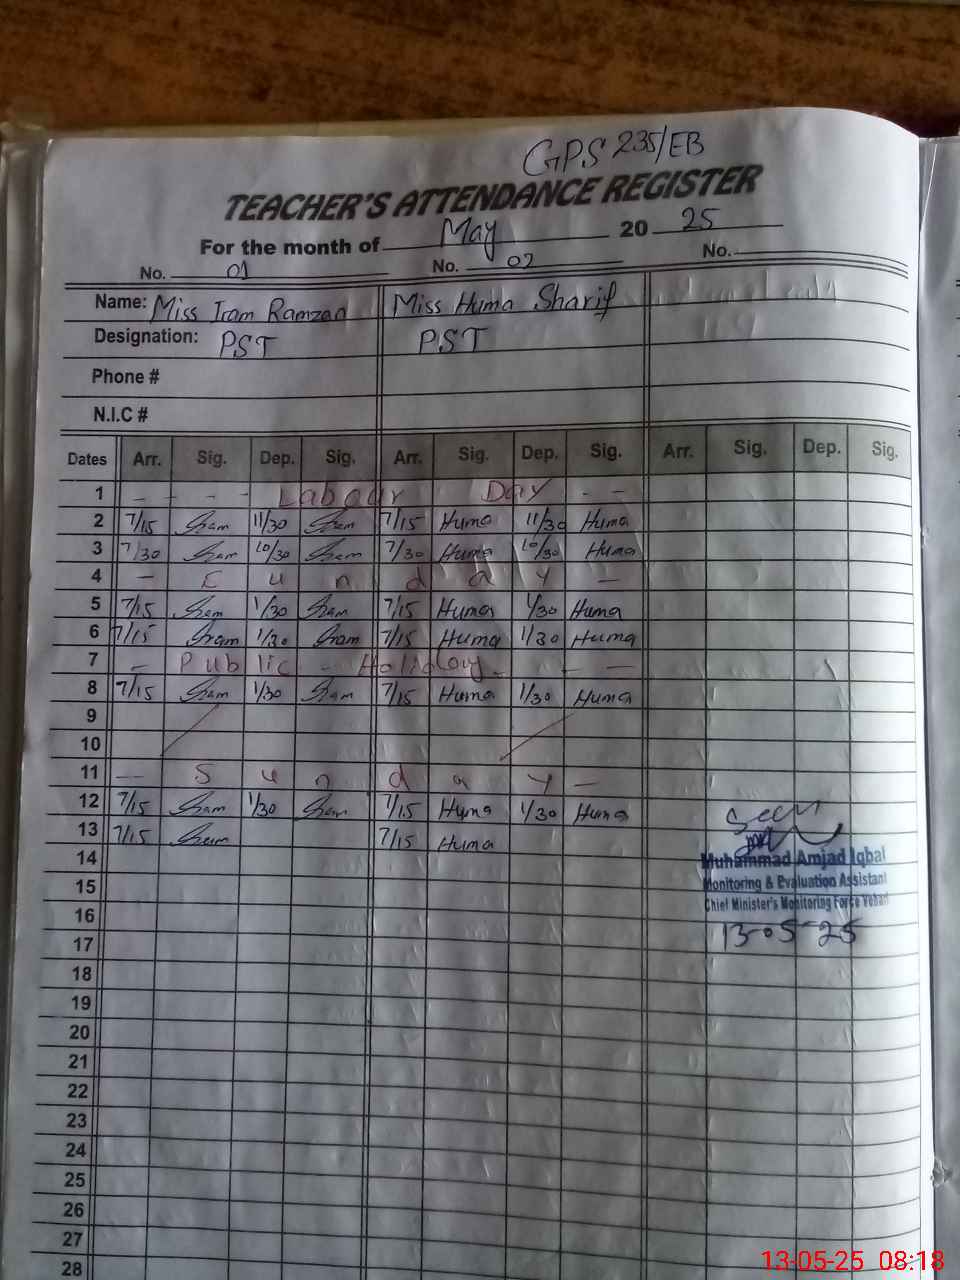 GPS 235/EB
TEACHER'S ATTENDANCE REGISTER
For the month of May 20 25
No. 01 No. 02 No.
Name: Miss Iram Ramzan Miss Huma Sharif
Designation: PST PST
Phone #
N.I.C #
Dates Arr. Sig. Dep. Sig. Arr. Sig. Dep. Sig. Arr. Sig. Dep. Sig.
1 - - - - Labour Day - -
2 7/15 Iram 11/30 Iram 7/15 Huma 11/30 Huma
3 7/30 Iram 10/30 Iram 7/30 Huma 10/30 Huma
4 - S u n d a y -
5 7/15 Iram 1/30 Iram 7/15 Huma 1/30 Huma
6 7/15 Iram 1/30 Iram 7/15 Huma 1/30 Huma
7 - Public - Holiday - - -
8 7/15 Iram 1/30 Iram 7/15 Huma 1/30 Huma
9
10
11 - S u n d a y -
12 7/15 Iram 1/30 Iram 7/15 Huma 1/30 Huma
13 7/15 Iram 7/15 Huma
14
15
16
17
18
19
20
21
22
23
24
25
26
27
28
Seen
Muhammad Amjad Iqbal
Monitoring & Evaluation Assistant
Chief Minister's Monitoring Force Vehari
13-05-25
13-05-25 08:18